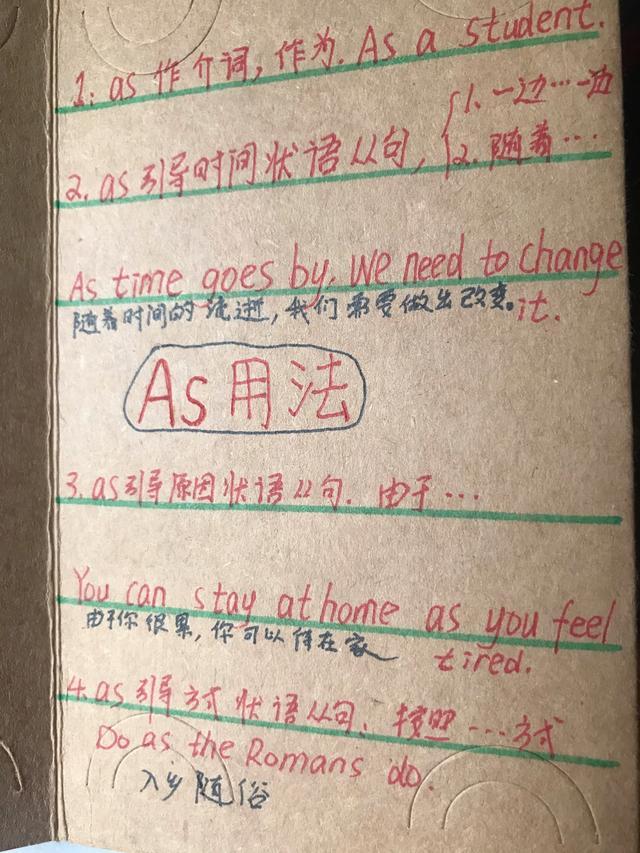 1. as 作介词, 作为. As a student.
2. as 引导时间状语从句, { 1. 一边…一边
2. 随着…
As time goes by, We need to change
it.
随着时间的流逝, 我们需要做出改变。
As 用法
3. as引导原因状语从句. 由于…
You can stay at home as you feel
tired.
由于你很累, 你可以待在家
4. as 引导方式状语从句、按照…方式
Do as the Romans do.
入乡随俗